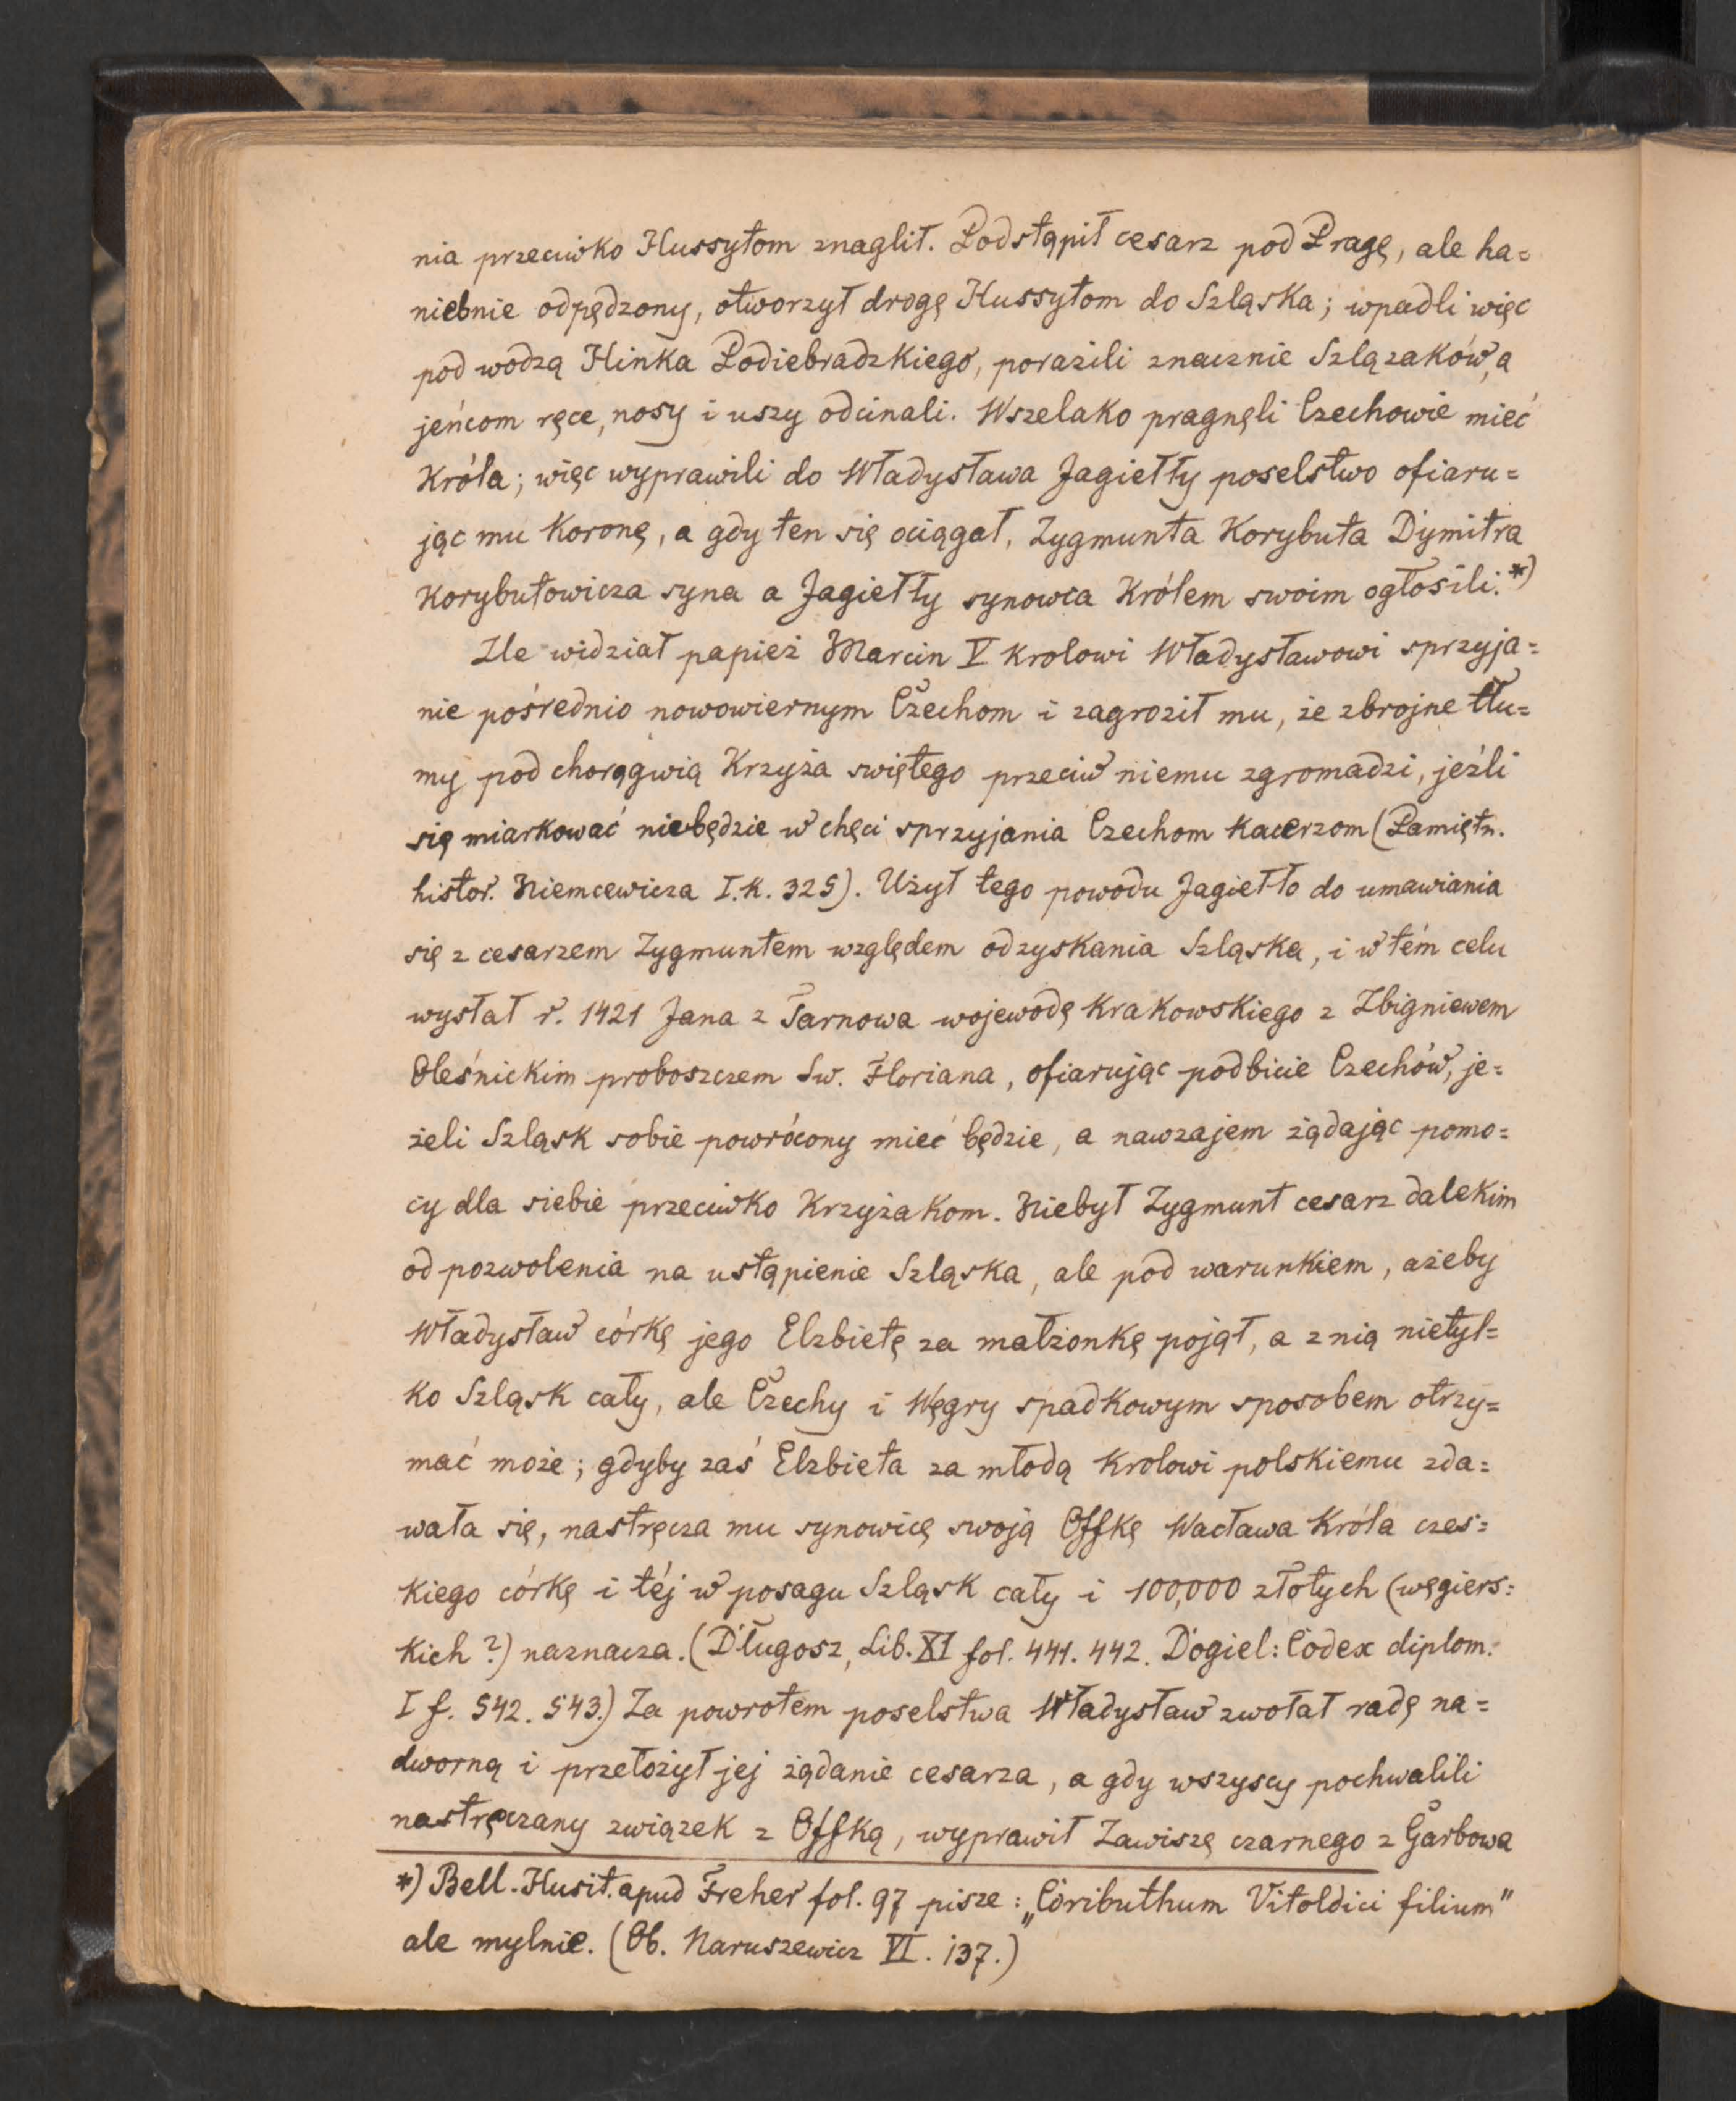 nia przeciwko Hussytom znaglił. Podstąpił cesarz pod Pragę, ale ha=
niebnie odpędzony, otworzył drogę Hussytom do Szląska; wpadli więc
pod wodzą Hinka Podiebradzkiego, porazili znacznie Szlązaków, a
jeńcom ręce, nosy i uszy odcinali. Wszelako pragnęli Czechowie mieć
Króla; więc wyprawili do Władysława Jagiełły poselstwo ofiaru=
jąc mu Koronę, a gdy ten się ociągał, Zygmunta Korybuta Dymitra
Korybutowicza syna a Jagiełły synowca Królem swoim ogłosili. *)
Zle widział papież Marcin V Krolowi Władysławowi sprzyja=
nie pośrednio nowowiernym Czechom i zagroził mu, że zbrojne tłu=
my pod chorągwią Krzyża swiętego przeciw niemu zgromadzi, jeźli
się miarkować niebędzie w chęci sprzyjania Czechom Kacerzom (Pamiętn.
histor. Niemcewicza I. K. 325). Użył tego powodu Jagiełło do umawiania
się z cesarzem Zygmuntem względem odzyskania Szląska, i w tém celu
wysłał r. 1421 Jana z Tarnowa wojewodę Krakowskiego z Zbigniewem
Oleśnickim proboszczem Sw. Floriana, ofiarując podbicie Czechów, je=
żeli Szląsk sobie powrócony mieć będzie, a nawzajem żądając pomo=
cy dla siebie przeciwko Krzyżakom. Niebył Zygmunt cesarz dalekim
od pozwolenia na ustąpienie Szląska, ale pod warunkiem, ażeby
Władysław córkę jego Elzbietę za małżonkę pojął, a z nią nietyl=
ko Szląsk cały, ale Czechy i Węgry spadkowym sposobem otrzy=
mać może; gdyby zaś Elzbieta za młodą Krolowi polskiemu zda=
wała się, nastręcza mu synowicę swoją Offkę Wacława Króla czes=
kiego córkę i téj w posagu Szląsk cały i 100,000 złotych (węgiers=
kich ?) naznacza. (Długosz, Lib. XI fol. 441. 442. Dogiel: Codex diplom.
I f. 542. 543.) Za powrotem poselstwa Władysław zwołał radę na=
dworną i przełożył jej żądanie cesarza, a gdy wszyscy pochwalili
nastręczany związek z Offką, wyprawił Zawiszę czarnego z Garbowa
*) Bell. Husit. apud Freher fol. 97 pisze: „Coributhum Vitoldici filium"
ale mylnie. (Ob. Naruszewicz VI. 137.)